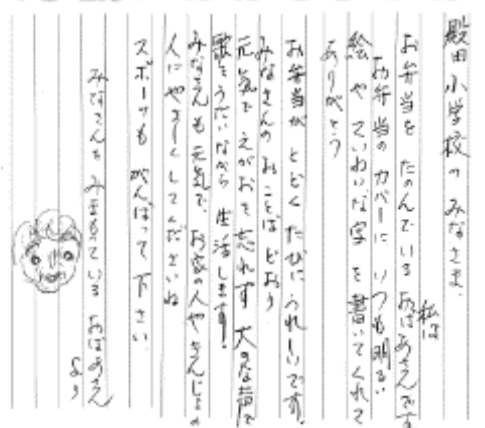 殿田小学校のみなさま
私は
お弁当をたのんでいるおばあさんです
お弁当のカバーにいつも明るい
絵やていねいな字を書いてくれて
ありがとう
お弁当がとどくたびにうれしいです。
みなさんのおことばどおり
元気でえがおを忘れず大きな声で
歌をうたいながら生活します!
みなさんも元気で、お家の人やきんじょの
人にやさしくしてくださいね
スポーツもがんばって下さい
みなさんをみまもっているおばあさん
より